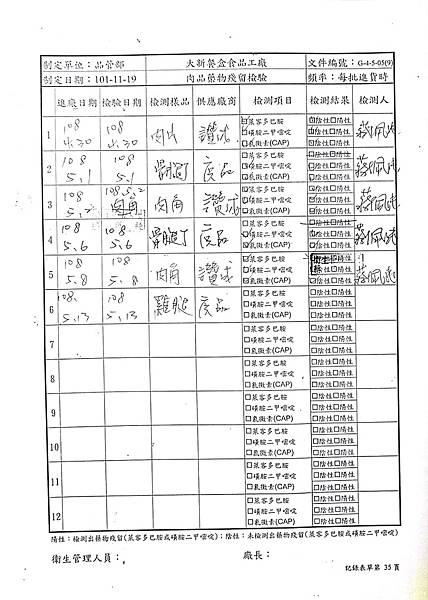 制定單位：品管部 大新餐盒食品工廠 文件編號：G-4-5-05(9)
制定日期：101-11-19 肉品藥物殘留檢驗 頻率：每批進貨時
進廠日期 檢驗日期 檢測樣品 供應廠商 檢測項目 檢測結果 檢測人
1 108 4.30 108 4.30 肉片 讚成 ☑萊客多巴胺 ☑陰性□陽性 蔡佩
☑磺胺二甲嘧啶 ☑陰性□陽性
☑氯黴素(CAP) ☑陰性□陽性
2 108 5.1 108 5.1 骨腿丁 度品 ☑萊客多巴胺 ☑陰性□陽性 蔡佩
☑磺胺二甲嘧啶 ☑陰性□陽性
☑氯黴素(CAP) ☑陰性□陽性
3 108 5.2 108.5.2 肉角 讚成 ☑萊客多巴胺 ☑陰性□陽性 蔡佩
☑磺胺二甲嘧啶 ☑陰性□陽性
☑氯黴素(CAP) ☑陰性□陽性
4 108 5.6 108 5.6 骨腿丁 度品 ☑萊客多巴胺 ☑陰性□陽性 蔡佩
☑磺胺二甲嘧啶 ☑陰性□陽性
☑氯黴素(CAP) ☑陰性□陽性
5 108 5.8 108 5.8 肉角 讚成 ☑萊客多巴胺 陽性 蔡佩
☑磺胺二甲嘧啶 陰性□陽性
☑氯黴素(CAP) □陰性□陽性
6 108. 5.13 108 5.13 雞腿 度品 □萊客多巴胺 □陰性□陽性
□磺胺二甲嘧啶 □陰性□陽性
□氯黴素(CAP) □陰性□陽性
7 □萊客多巴胺 □陰性□陽性
□磺胺二甲嘧啶 □陰性□陽性
□氯黴素(CAP) □陰性□陽性
8 □萊客多巴胺 □陰性□陽性
□磺胺二甲嘧啶 □陰性□陽性
□氯黴素(CAP) □陰性□陽性
9 □萊客多巴胺 □陰性□陽性
□磺胺二甲嘧啶 □陰性□陽性
□氯黴素(CAP) □陰性□陽性
10 □萊客多巴胺 □陰性□陽性
□磺胺二甲嘧啶 □陰性□陽性
□氯黴素(CAP) □陰性□陽性
11 □萊客多巴胺 □陰性□陽性
□磺胺二甲嘧啶 □陰性□陽性
□氯黴素(CAP) □陰性□陽性
12 □萊客多巴胺 □陰性□陽性
□磺胺二甲嘧啶 □陰性□陽性
□氯黴素(CAP) □陰性□陽性
陽性：檢測出藥物殘留(萊客多巴胺或磺胺二甲嘧啶)；陰性：未檢測出藥物殘留(萊客多巴胺或磺胺二甲嘧啶)
衛生管理人員： 廠長：
記錄表單第 35 頁